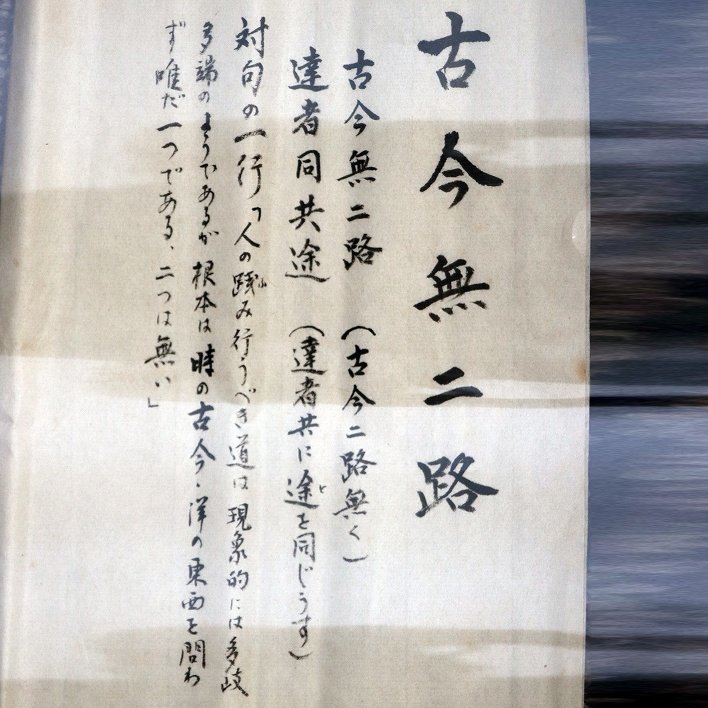 古今無二路
古今無二路(古今二路無く)
達者同共途(達者共に途を同じうす)
対句の一行「人の践み行うべき道は現象的には多岐
多端のようであるが根本は時の古今、洋の東西を問わ
ず唯だ一つである、二つは無い」